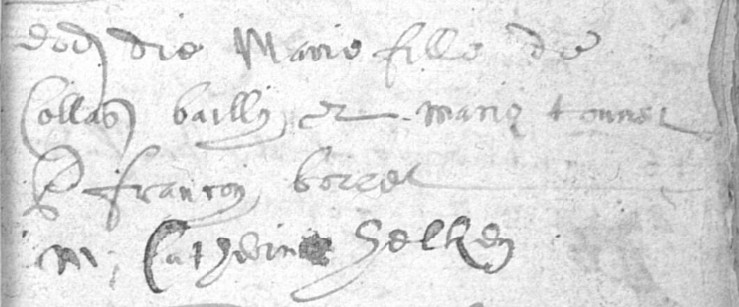 eod die Marie fille de
Collas bailly et marie tonnet
P françoy borret
M, Catherine helken